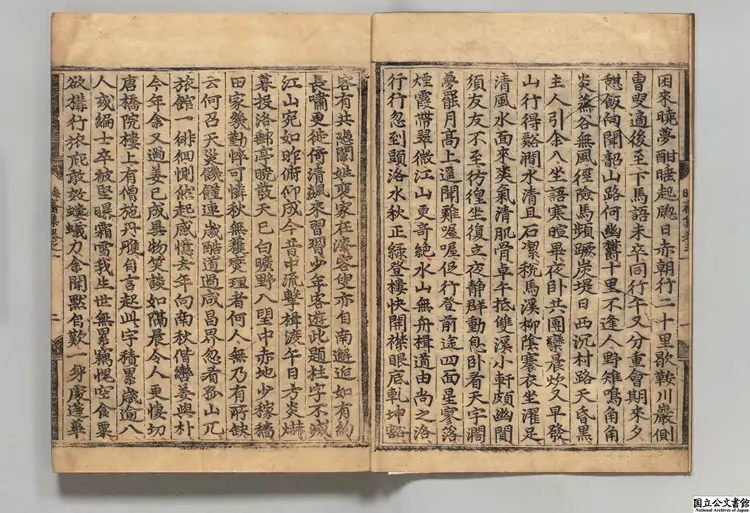 因來曉夢酣睡起窓日赤朝行二十里歇鞍川巖側
曹叟適後至下馬語未卒同行午又分重會期來夕
憩飯向聞韶山路何幽鬱十里不逢人野雉鳴角角
炎蒸谷無風徑險馬頻蹶炭堤日西沉村路天昏黒
主人引余入坐語寒暄畢夜卧共團欒晨炊又早發
山行得谿澗水清且石潔秣馬溪柳陰褰衣坐濯足
清風水面來爽氣清肌骨卓午抵雙溪小軒頗幽閒
須友友不至彷徨坐復立夜静群動息卧看天宇濶
夢罷月髙上遥聞雞喔喔促行登前途四面星寥落
煙霞帶翠微江山更奇絶水山無舟楫道由尚之洛
行行忽到頭洛水秋正緑登樓快開襟眼底乾坤豁
客有共憑闌姓裵家在漆客叟亦自南邂逅如有約
長嘯更徙倚清飆來習習少年客遊此題柱字不滅
江山宛如昨俯仰成今昔中流擊楫渡午日方炎爀
暮投洛郵亭曉散天已白曠野入望中赤地少稼穡
田家幾勤悴可憐秋無穫燮理者何人無乃有所缺
云何召天災饑饉連歲酷道過咸昌界忽看孤山兀
旅舘一徘徊惻然起感憶去年向南秋偕姜與朴
今年余又過姜已成異物笑談如隔晨今人更悽切
唐橋院樓上有僧施丹雘自言起此字積累歲逾八
人或編士卒被堅暴霜雪我生世無累竊愧空食粟
欲搆行旅庇敢效螻蟻力余聞默歎一身處蓬蓽
国立公文書館
National Archives of Japan